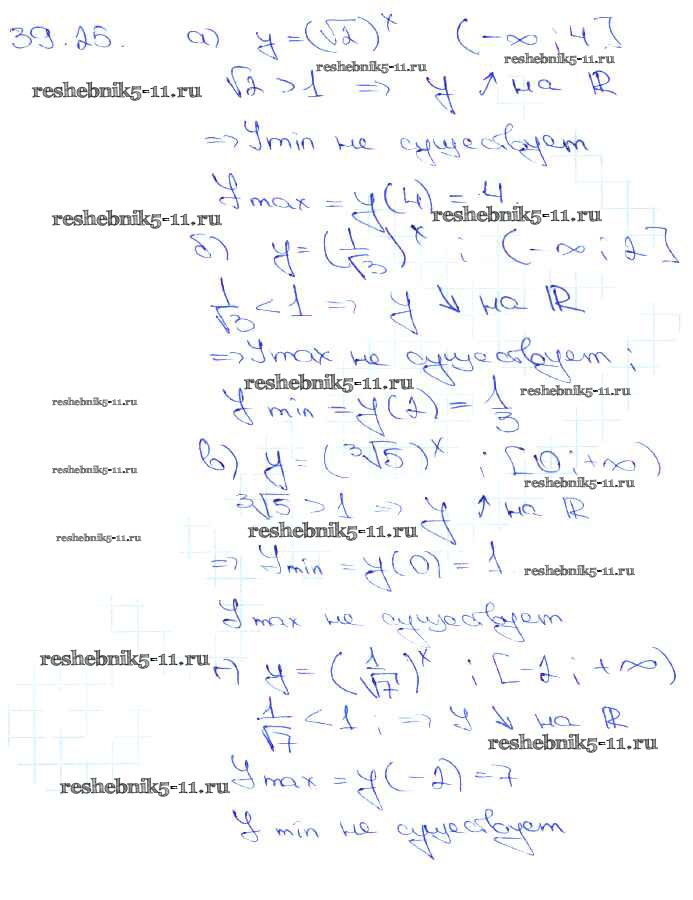 39.25. а) y = (√2)^x (-∞; 4]
reshebnik5-11.ru reshebnik5-11.ru
√2 > 1 => y ↑ на ℝ
reshebnik5-11.ru
=> y min не существует
y max = y(4) = 4.
reshebnik5-11.ru reshebnik5-11.ru
б) y = (1/√3)^x ; (-∞; 2]
1/√3 < 1 => y ↓ на ℝ
=> y max не существует;
reshebnik5-11.ru reshebnik5-11.ru
reshebnik5-11.ru
y min = y(2) = 1/3
в) y = (³√5)^x ; [0; +∞)
reshebnik5-11.ru reshebnik5-11.ru
³√5 > 1 => y ↑ на ℝ
reshebnik5-11.ru reshebnik5-11.ru
=> y min = y(0) = 1
reshebnik5-11.ru
y max не существует
reshebnik5-11.ru
г) y = (1/√7)^x ; [-2; +∞)
1/√7 < 1; => y ↓ на ℝ
reshebnik5-11.ru
y max = y(-2) = 7
reshebnik5-11.ru
y min не существует